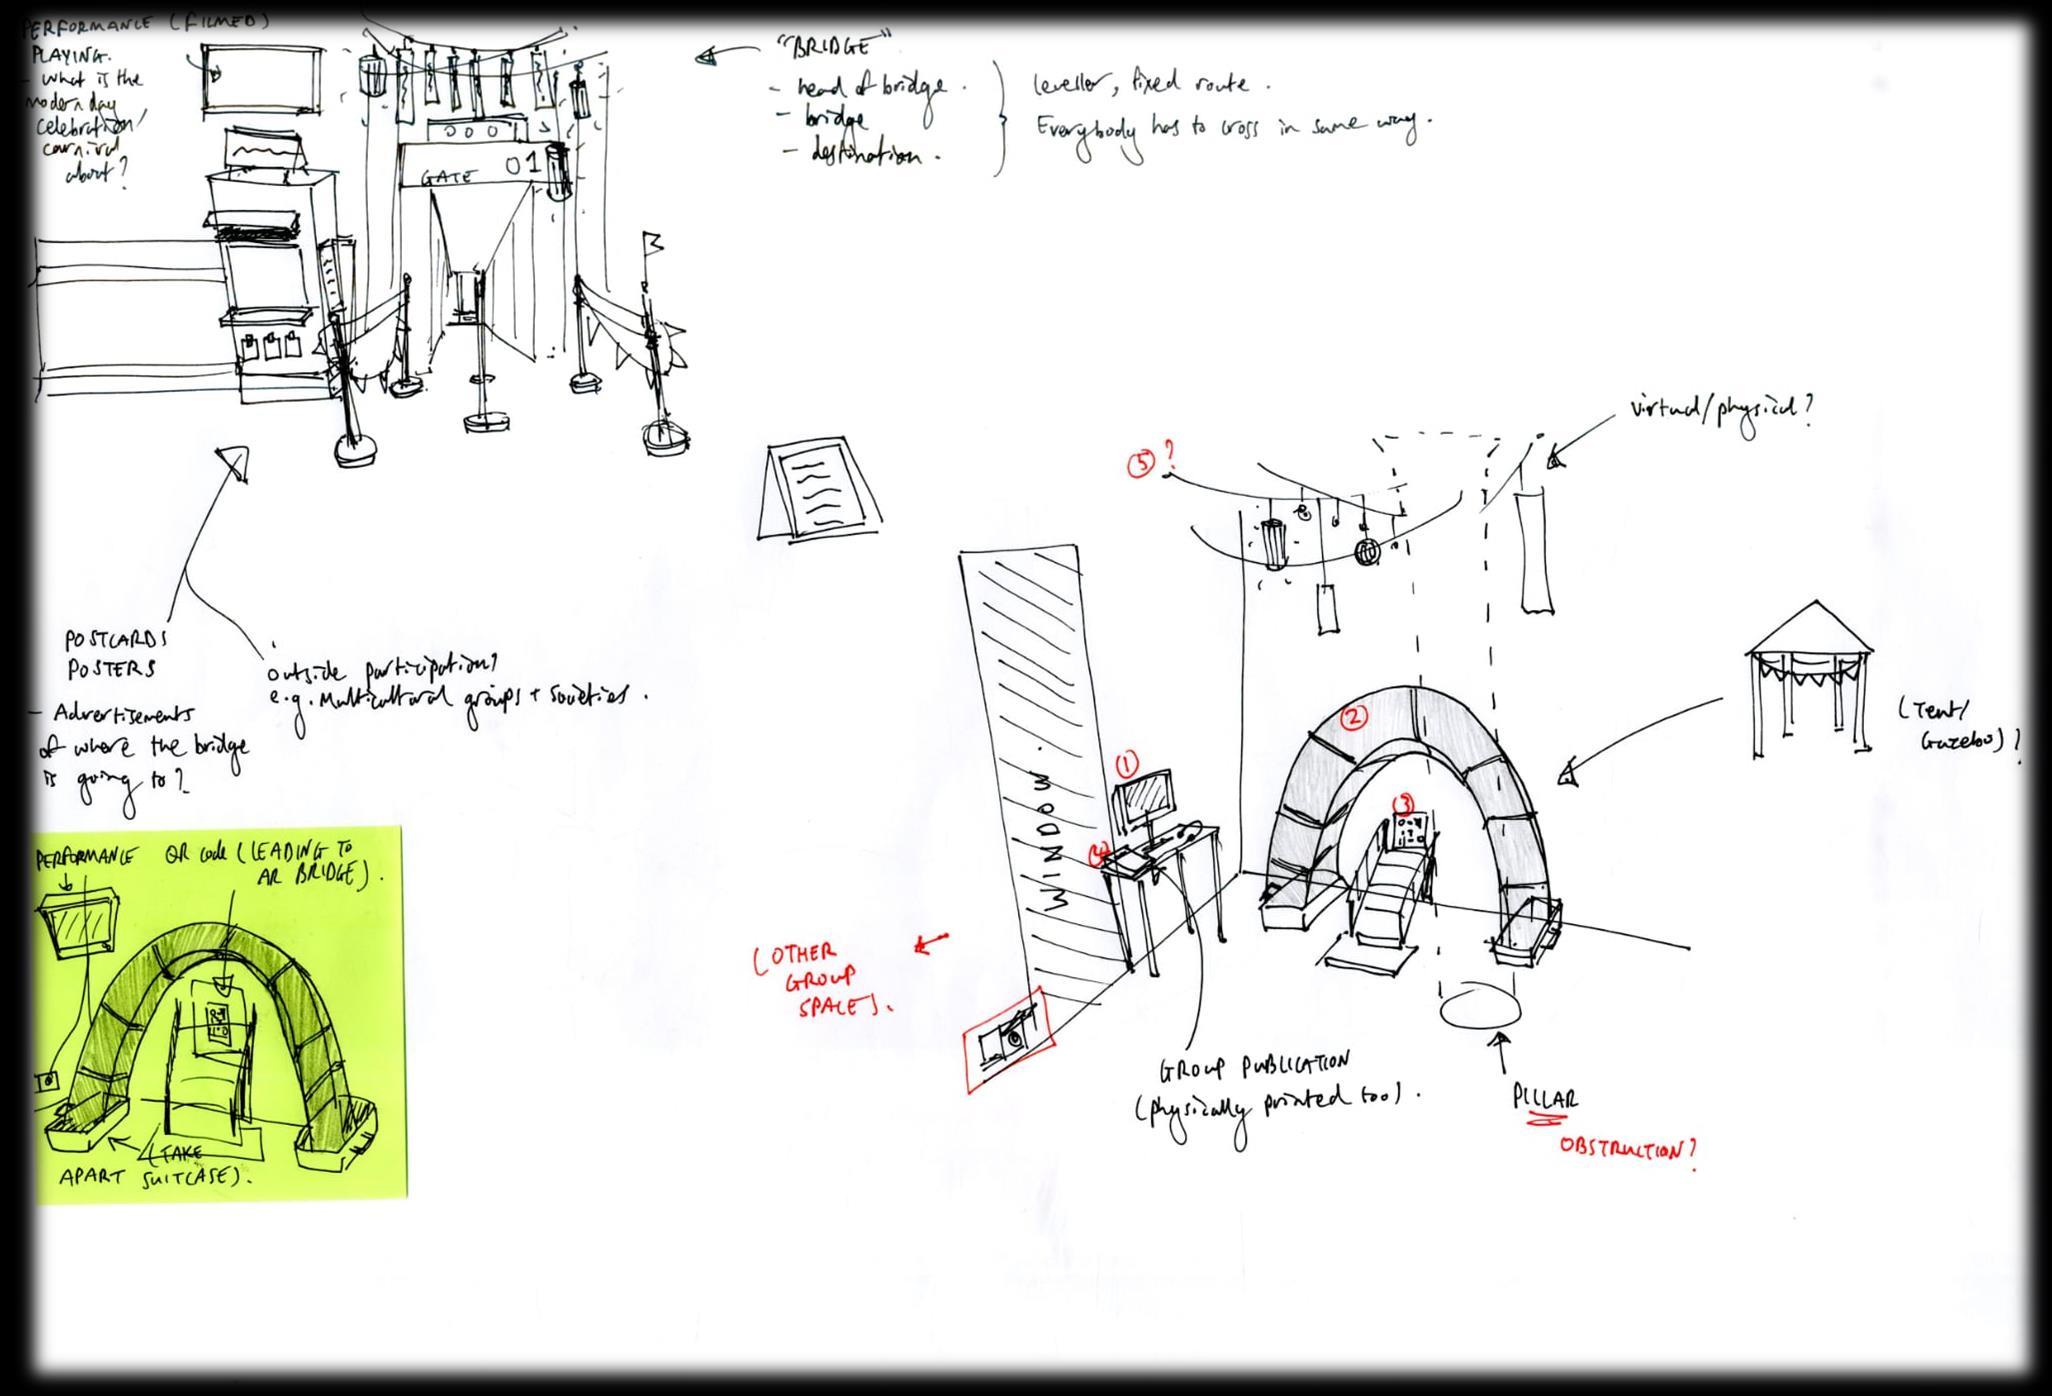 PERFORMANCE (FILMED)
PLAYING.
- what is the
modern day
celebration/
carnival
about?
GATE 01
"BRIDGE"
- head of bridge.
- bridge
- destination.
leveller, fixed route.
Everybody has to cross in same way.
virtual/physical?
POSTCARDS
POSTERS
- Advertisements
of where the bridge
is going to?
outside participation?
e.g. Multicultural groups + societies.
5?
2
1
3
4
WINDOW.
(Tent/
Gazebo)?
PERFORMANCE
QR code (LEADING TO
AR BRIDGE).
(TAKE
APART SUITCASE).
(OTHER
GROUP
SPACE).
GROUP PUBLICATION
(physically printed too).
PILLAR
OBSTRUCTION?